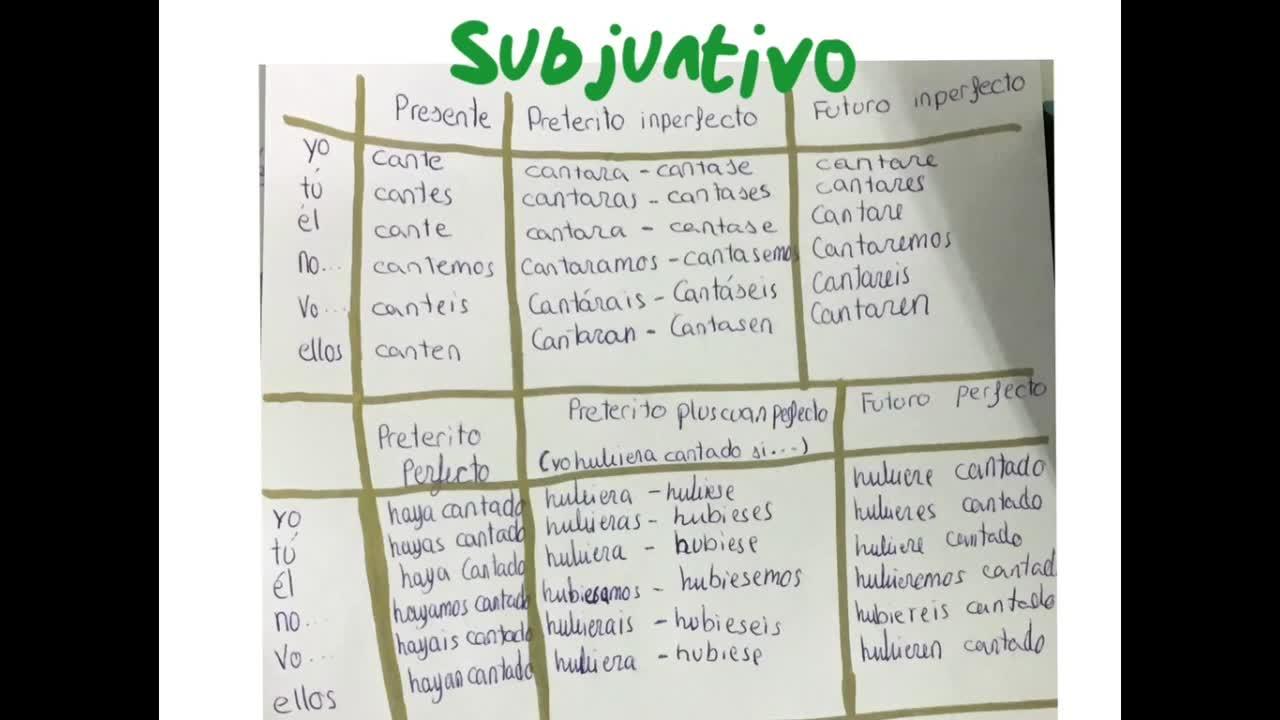 Subjuntivo
Presente Preterito inperfecto Futuro inperfecto
yo cante cantara - cantase cantare
tú cantes cantaras - cantases cantares
él cante cantara - cantase Cantare
no... cantemos Cantaramos - cantasemos Cantaremos
Vo... canteis Cantárais - Cantáseis Cantareis
ellos canten Cantaran - Cantasen Cantaren
Preterito Perfecto Preterito pluscuanperfecto (yo hubiera cantado si...) Futuro perfecto
yo haya cantado hubiera - hubiese hubiere cantado
tú hayas cantado hubieras - hubieses hubieres cantado
él haya Cantado hubiera - hubiese hubiere cantado
no... hayamos cantado hubiesamos - hubiesemos hubieremos cantad
Vo... hayais cantado hubierais - hubieseis hubiereis cantado
ellos hayan cantado hubiera - hubiese hubieren cantado